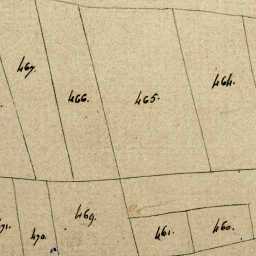 467.
464.
466.
465.
469.
470.
461.
460.